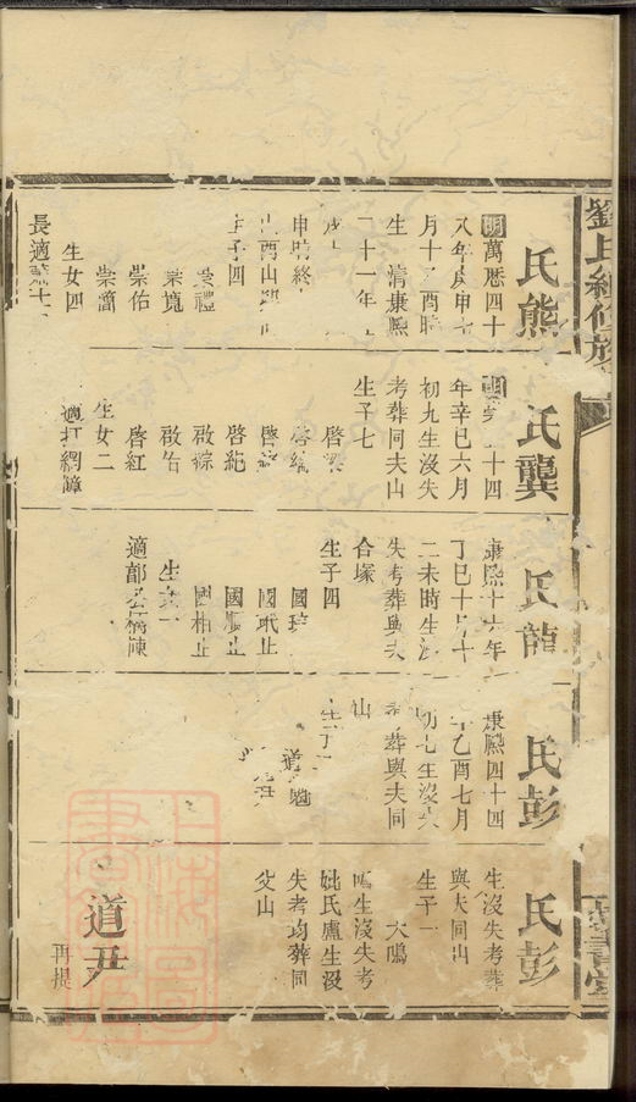 氏熊
明萬曆四十
八年庚申七
月十 酉時
生 清康熙
二十一年
申時終
酉山
生子四
崇禮
崇寬
崇佑
崇簡
生女四
長適
氏龔
明崇 十四
年辛巳六月
初九生沒失
考葬同夫山
生子七
啓
啓
啓
啓純
啟綜
啟
啓紅
生女二
適打網
氏龍
康熙十六年
丁巳十月十
二未時生沒
失考葬與夫
合塚
生子四
國
國珉止
國 止
國相止
生女一
適鄒公橋陳
氏彭
康熙四十四
年乙酉七月
初七生沒失
考葬與夫同
山
生子
道
氏彭
生沒失考葬
與夫同山
生子一
大鳴
鳴生沒失考
妣氏盧生沒
失考均葬同
父山
道尹
再提
劉氏續修族
書堂
上海圖書館藏